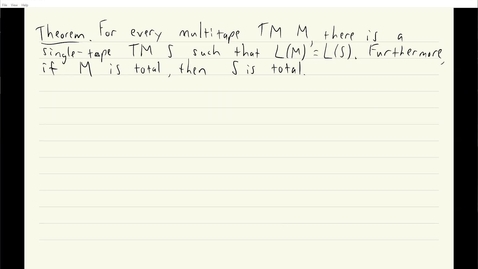 Theorem. For every multitape TM M, there is a
single-tape TM S such that L(M) = L(S). Furthermore,
if M is total, then S is total.